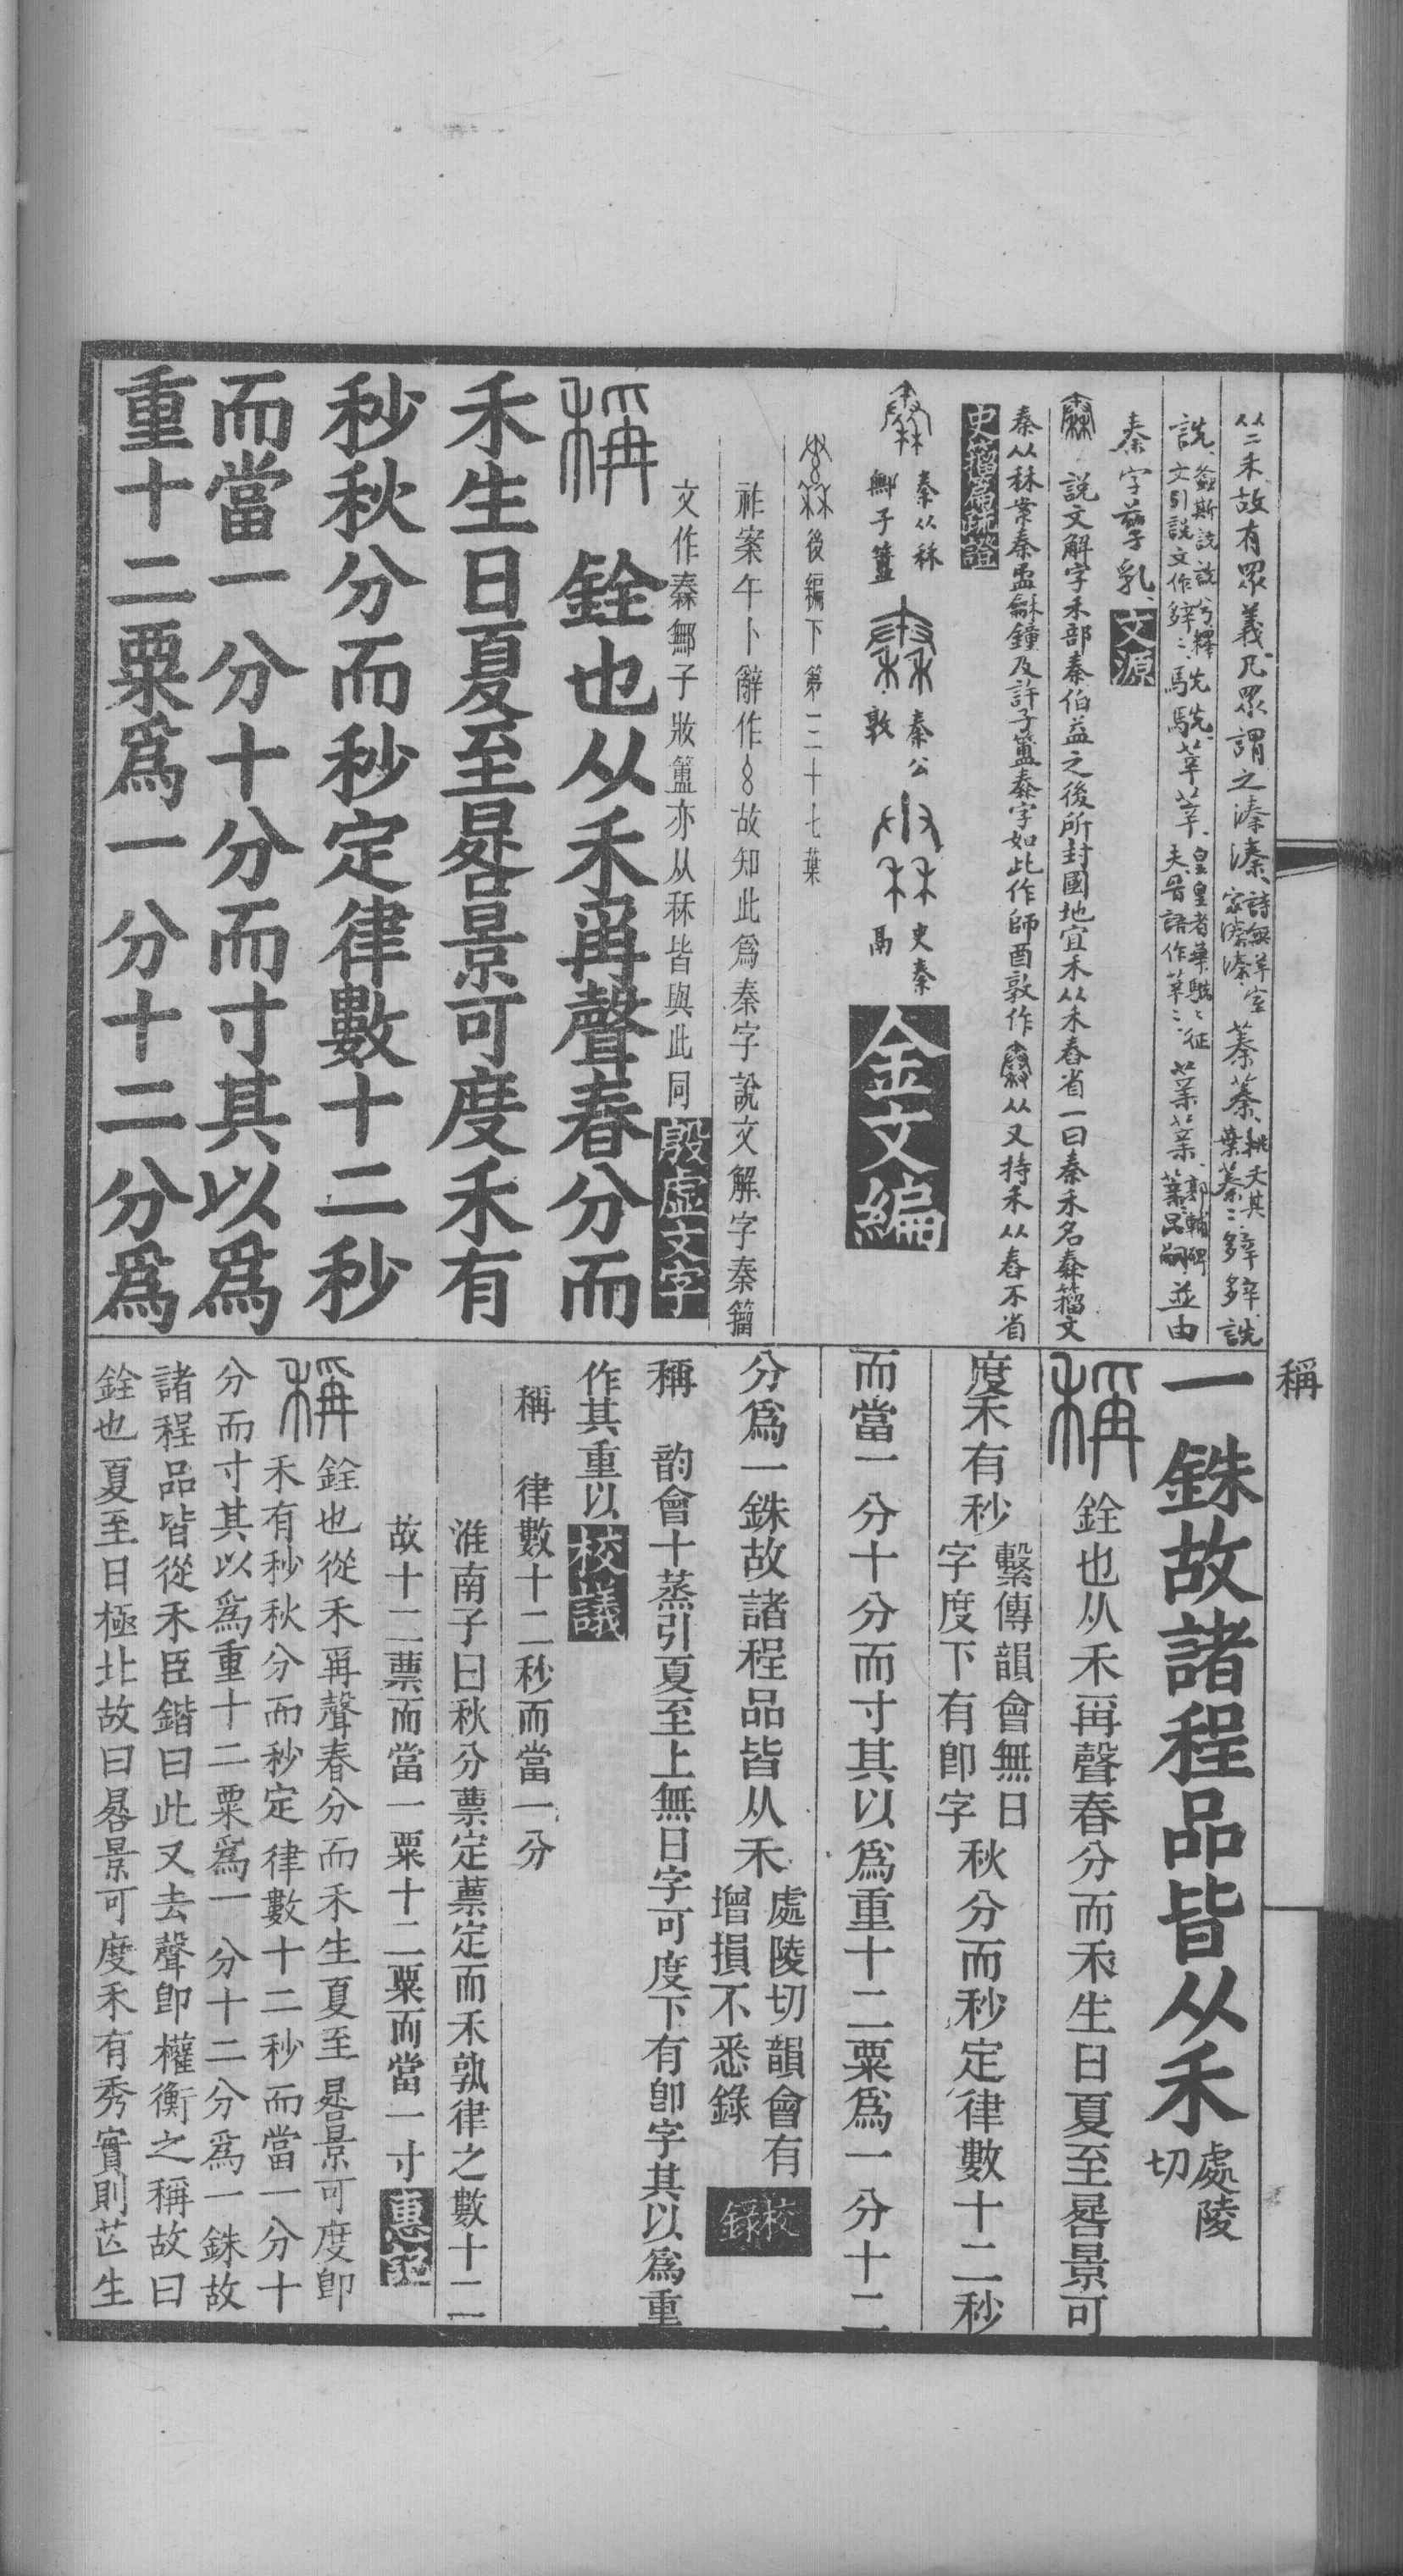 从二禾故有眾義凡眾謂之溱溱詩無羊室家溱溱蓁蓁桃夭其葉蓁蓁
皇皇者華駪駪征夫晉語作莘
文源
秦字孳乳
說文解字禾部秦伯益之後所封國地宜禾从禾舂省一曰秦禾名䆐籀文
秦从秝案秦盄龢鐘及許子簠秦字如此作師酉敦作
从又持禾从舂不省
史籀篇疏證
秦从秝
鄦子簠
秦公
敦
史秦
鬲
金文編
後編下第三十七葉
祚案午卜辭作
故知此爲秦字說文解字秦籀
文作䆐鄦子妝簠亦从秝皆與此同
殷虛文字
稱
銓也从禾爯聲春分而
禾生日夏至晷景可度禾有
秒秋分而秒定律數十二秒
而當一分十分而寸其以爲
重十二粟爲一分十二分爲
稱
一銖故諸程品皆从禾處陵切
稱
銓也从禾爯聲春分而禾生日夏至晷景可
度禾有秒繫傳韻會無日字度下有卽字秋分而秒定律數十二秒
而當一分十分而寸其以爲重十二粟爲一分十二
分爲一銖故諸程品皆从禾處陵切韻會有增損不悉錄
校錄
稱 韵會十蒸引夏至上無日字可度下有卽字其以爲重
作其重以
校議
稱 律數十二秒而當一分
淮南子曰秋分蔈定蔈定而禾孰律之數十二
故十二蔈而當一粟十二粟而當一寸
惠氏
稱
銓也從禾爯聲春分而禾生夏至晷景可度卽
禾有秒秋分而秒定律數十二秒而當一分十
分而寸其以爲重十二粟爲一分十二分爲一銖故
諸程品皆從禾臣鍇曰此又去聲卽權衡之稱故曰
銓也夏至日極北故曰晷景可度禾有秀實則芒生